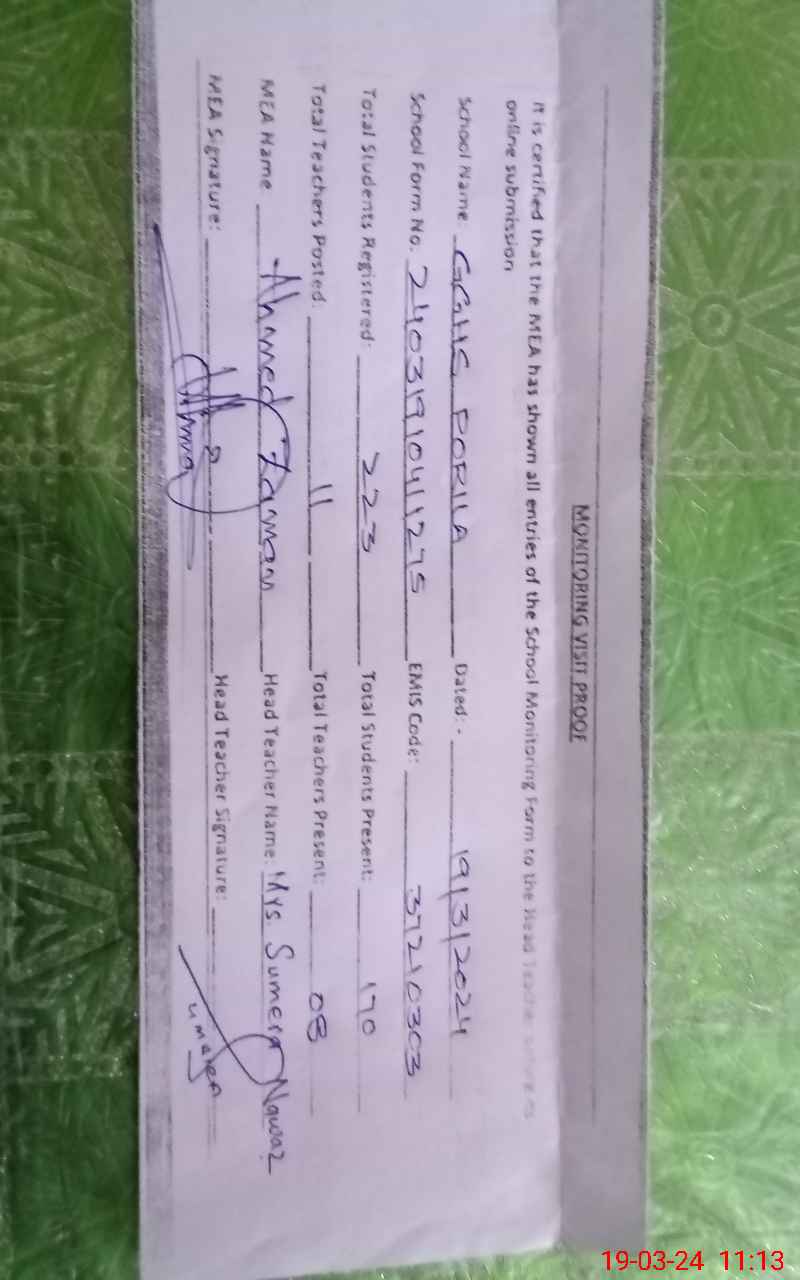 MONITORING VISIT PROOF
It is certified that the MEA has shown all entries of the School Monitoring Form to the Head Teacher
online submission
School Name: GGHS DORILA Dated:- 19/3/2024
School Form No. 24031910411275 EMIS Code: 37210303
Total Students Registered: 223 Total Students Present: 170
Total Teachers Posted: 11 Total Teachers Present: 08
MEA Name Ahmed Zaman Head Teacher Name: Mrs. Sumera Nawaz
MEA Signature: Head Teacher Signature:
19-03-24 11:13